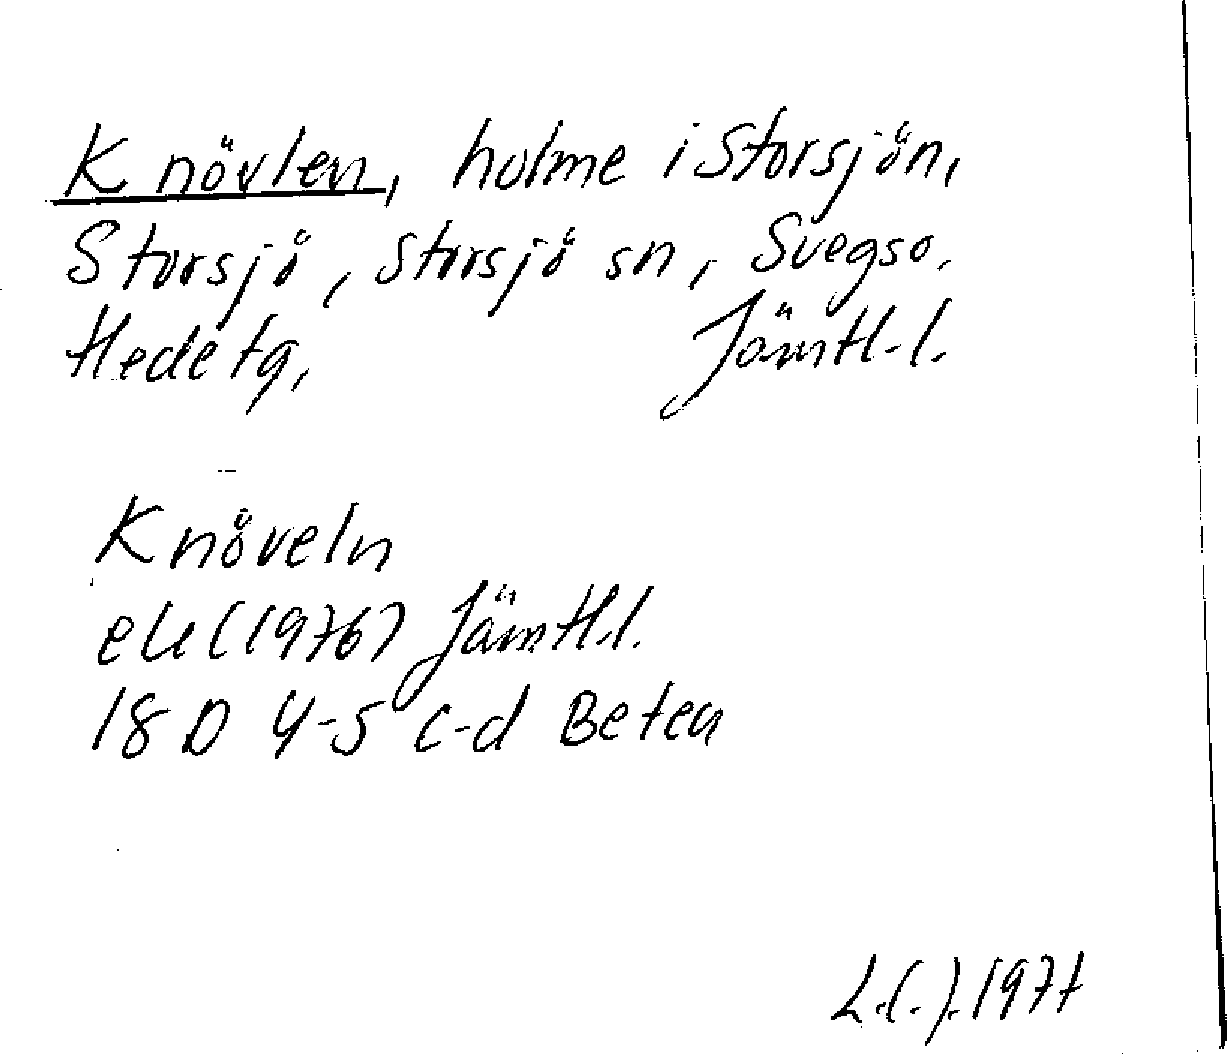 Knövlen, holme i Storsjön,
Storsjö, Storsjö sn, Svegs o.
Hede tg, Jämtl. l.
Knöveln
ek (1976) Jämtl. l.
18 D 4-5 c-d Beten
1977